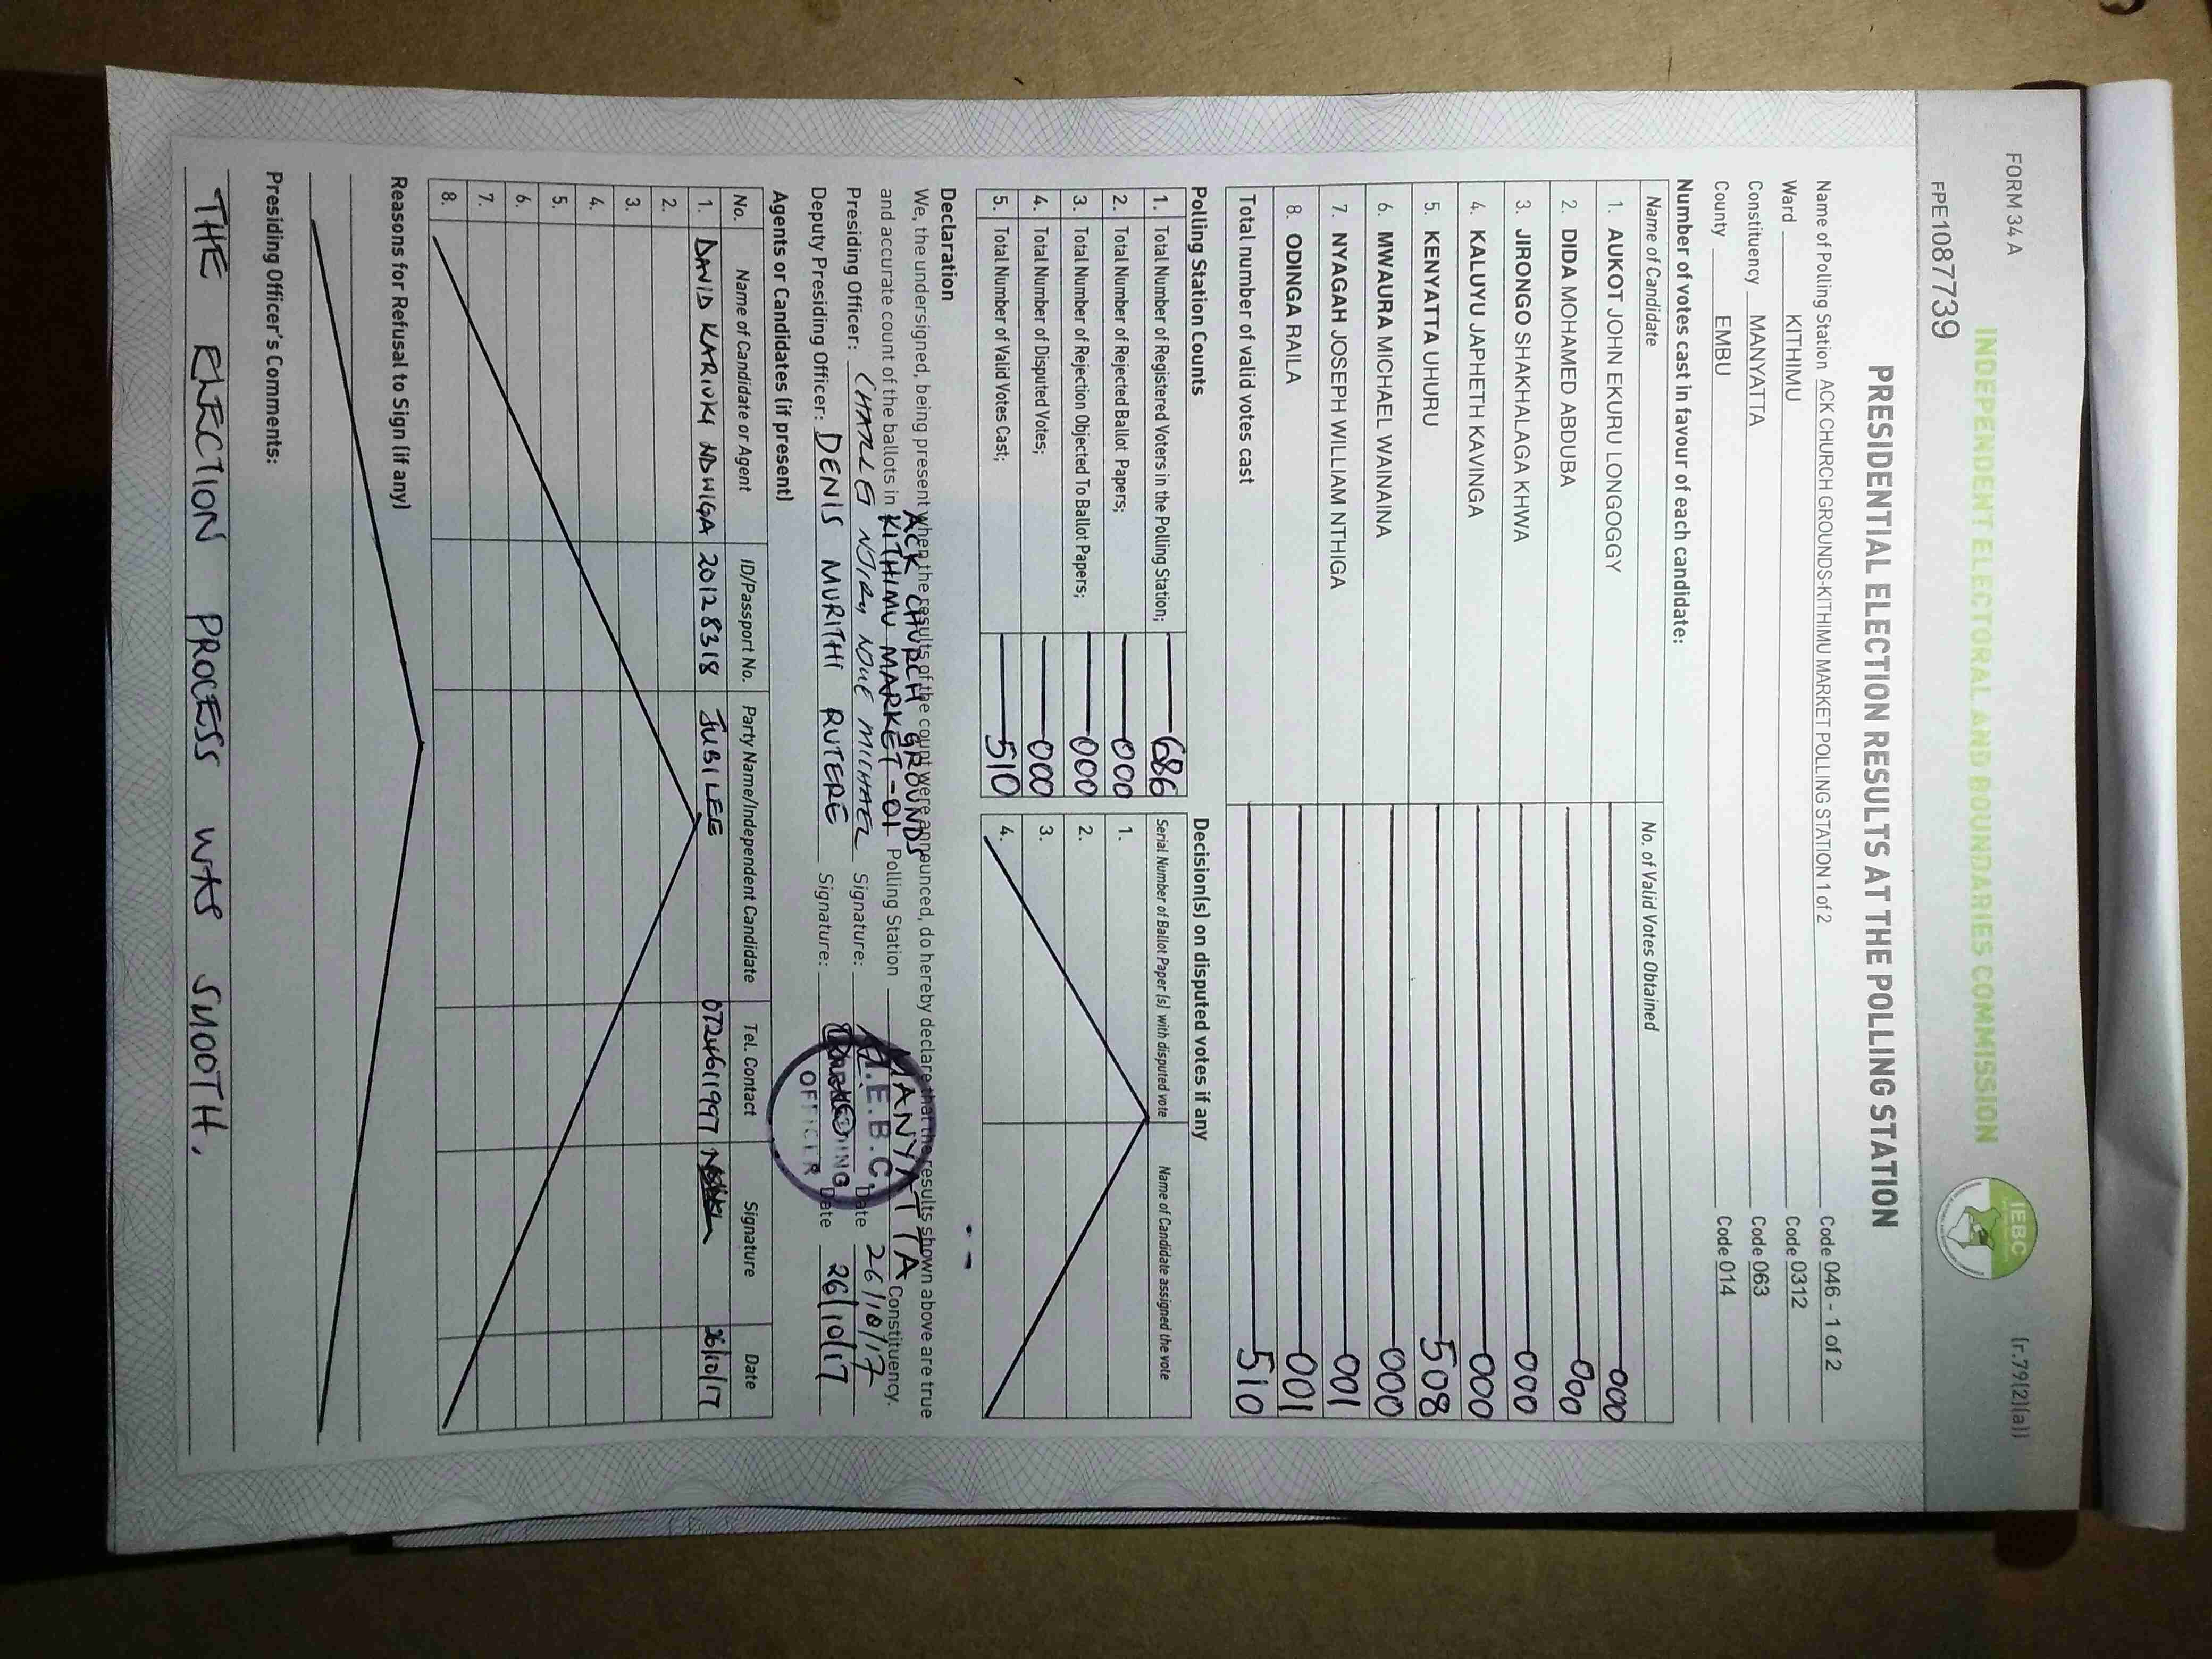 FORM 34 A
(r.79(2)(a))
INDEPENDENT ELECTORAL AND BOUNDARIES COMMISSION
IEBC
FPE1087739
PRESIDENTIAL ELECTION RESULTS AT THE POLLING STATION
Name of Polling Station ACK CHURCH GROUNDS-KITHIMU MARKET POLLING STATION 1 of 2 Code 046 - 1 of 2
Ward KITHIMU Code 0312
Constituency MANYATTA Code 063
County EMBU Code 014
Number of votes cast in favour of each candidate:
Name of Candidate No. of Valid Votes Obtained
1. AUKOT JOHN EKURU LONGOGGY 000
2. DIDA MOHAMED ABDUBA 000
3. JIRONGO SHAKHALAGA KHWA 000
4. KALUYU JAPHETH KAVINGA 000
5. KENYATTA UHURU 508
6. MWAURA MICHAEL WAINAINA 000
7. NYAGAH JOSEPH WILLIAM NTHIGA 001
8. ODINGA RAILA 001
Total number of valid votes cast 510
Polling Station Counts
1. Total Number of Registered Voters in the Polling Station; 686
2. Total Number of Rejected Ballot Papers; 000
3. Total Number of Rejection Objected To Ballot Papers; 000
4. Total Number of Disputed Votes; 000
5. Total Number of Valid Votes Cast; 510
Decision(s) on disputed votes if any
Serial Number of Ballot Paper (s) with disputed vote Name of Candidate assigned the vote
1.
2.
3.
4.
Declaration
We, the undersigned, being present when the results of the count were announced, do hereby declare that the results shown above are true
ACK CHURCH GROUNDS
and accurate count of the ballots in KITHIMU MARKET -01 Polling Station MANYATTA Constituency.
Presiding Officer: MICHAEL Signature: Date 26/10/17
Deputy Presiding Officer: DENIS MURITHI RUTERE Signature: Date 26/10/17
I.E.B.C.
OFFICER
Agents or Candidates (if present)
No. Name of Candidate or Agent ID/Passport No. Party Name/Independent Candidate Tel. Contact Signature Date
1. DAVID KARIUKI NDWIGA 20128318 JUBILEE 0724611997 26/10/17
2.
3.
4.
5.
6.
7.
8.
Reasons for Refusal to Sign (if any)
Presiding Officer's Comments:
THE ELECTION PROCESS WAS SMOOTH.